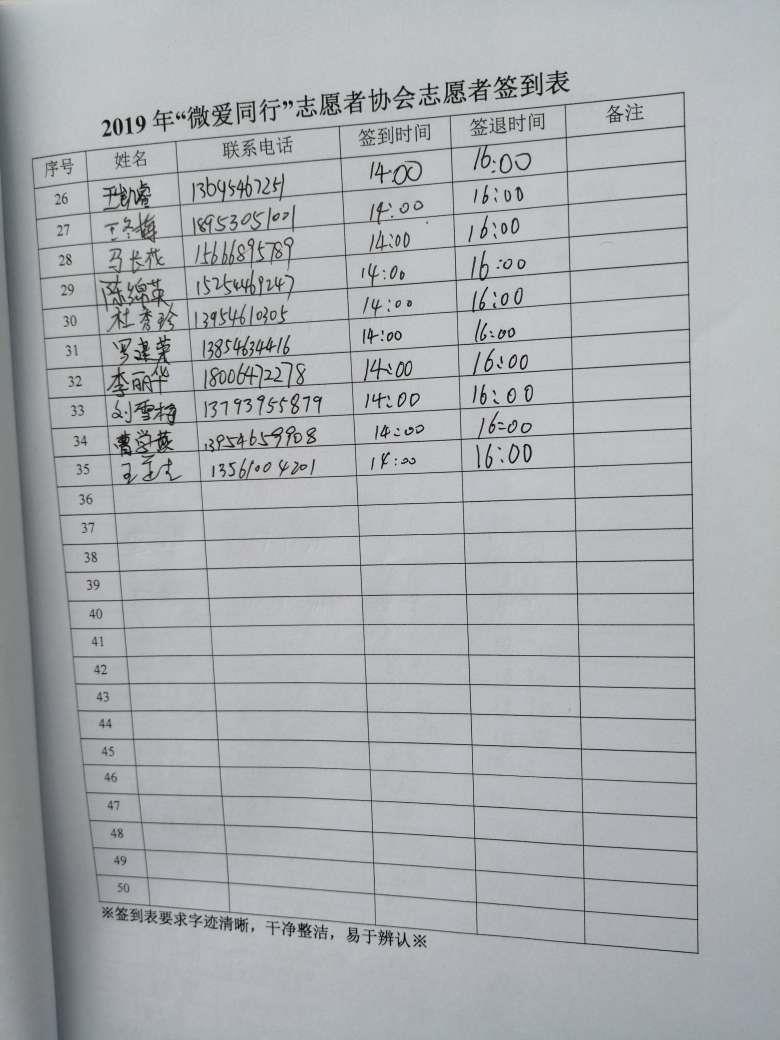 2019年“微爱同行”志愿者协会志愿者签到表
序号 姓名 联系电话 签到时间 签退时间 备注
26 王凯睿 13695467251 14:00 16:00
27 王冬梅 18953051001 14:00 16:00
28 马长花 15666895789 14:00 16:00
29 陈绵英 15254469247 14:00 16:00
30 杜秀珍 13954610305 14:00 16:00
31 13854634416 14:00 16:00
32 李丽华 18006472278 14:00 16:00
33 刘雪梅 13793955879 14:00 16:00
34 曹学燕 13954659908 14:00 16:00
35 13561004201 14:00 16:00
36
37
38
39
40
41
42
43
44
45
46
47
48
49
50
※签到表要求字迹清晰，干净整洁，易于辨认※